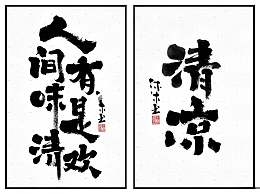 人
间有
味是
清欢
清
凉